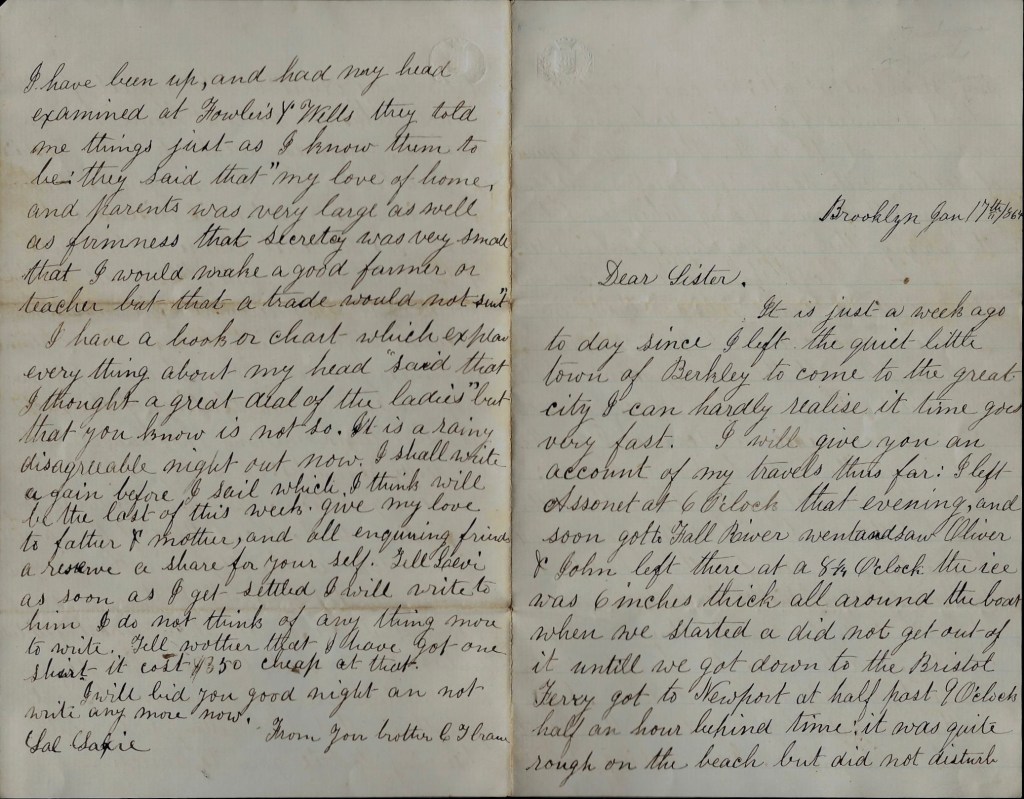 Brooklyn Jan 17th/1864
Dear Sister.
It is just a week ago
to day since I left the quiet little
town of Berkley to come to the great
city I can hardly realise it time goes
very fast. I will give you an
account of my travels thus far: I left
Assonet at 6 O'clock that evening, and
soon got to Fall River went and saw Oliver
& John left there at a 8¼ O'clock the ice
was 6 inches thick all around the boat
when we started a did not get out of
it untill we got down to the Bristol
Ferry got to Newport at half past 9 O'clock
half an hour behind time: it was quite
rough on the beach but did not disturb
I have been up, and had my head
examined at Fowler's & Wells they told
me things just as I know them to
be: they said that "my love of home,
and parents was very large as well
as firmness that secretcy was very small
that I would make a good farmer or
teacher but that a trade would not suit"
I have a book or chart which explain
every thing about my head "said that
I thought a great deal of the ladies" but
that you know is not so. It is a rainy
disagreeable night out now. I shall write
again before I sail which, I think will
be the last of this week. give my love
to father & mother, and all enquiring friends
a reserve a share for your self. Tell Levi
as soon as I get settled I will write to
him I do not think of any thing more
to write. Tell mother that I have got one
shirt it cost $350 cheap at that.
I will bid you good night an not
write any more now.
From Your brother C T Crane